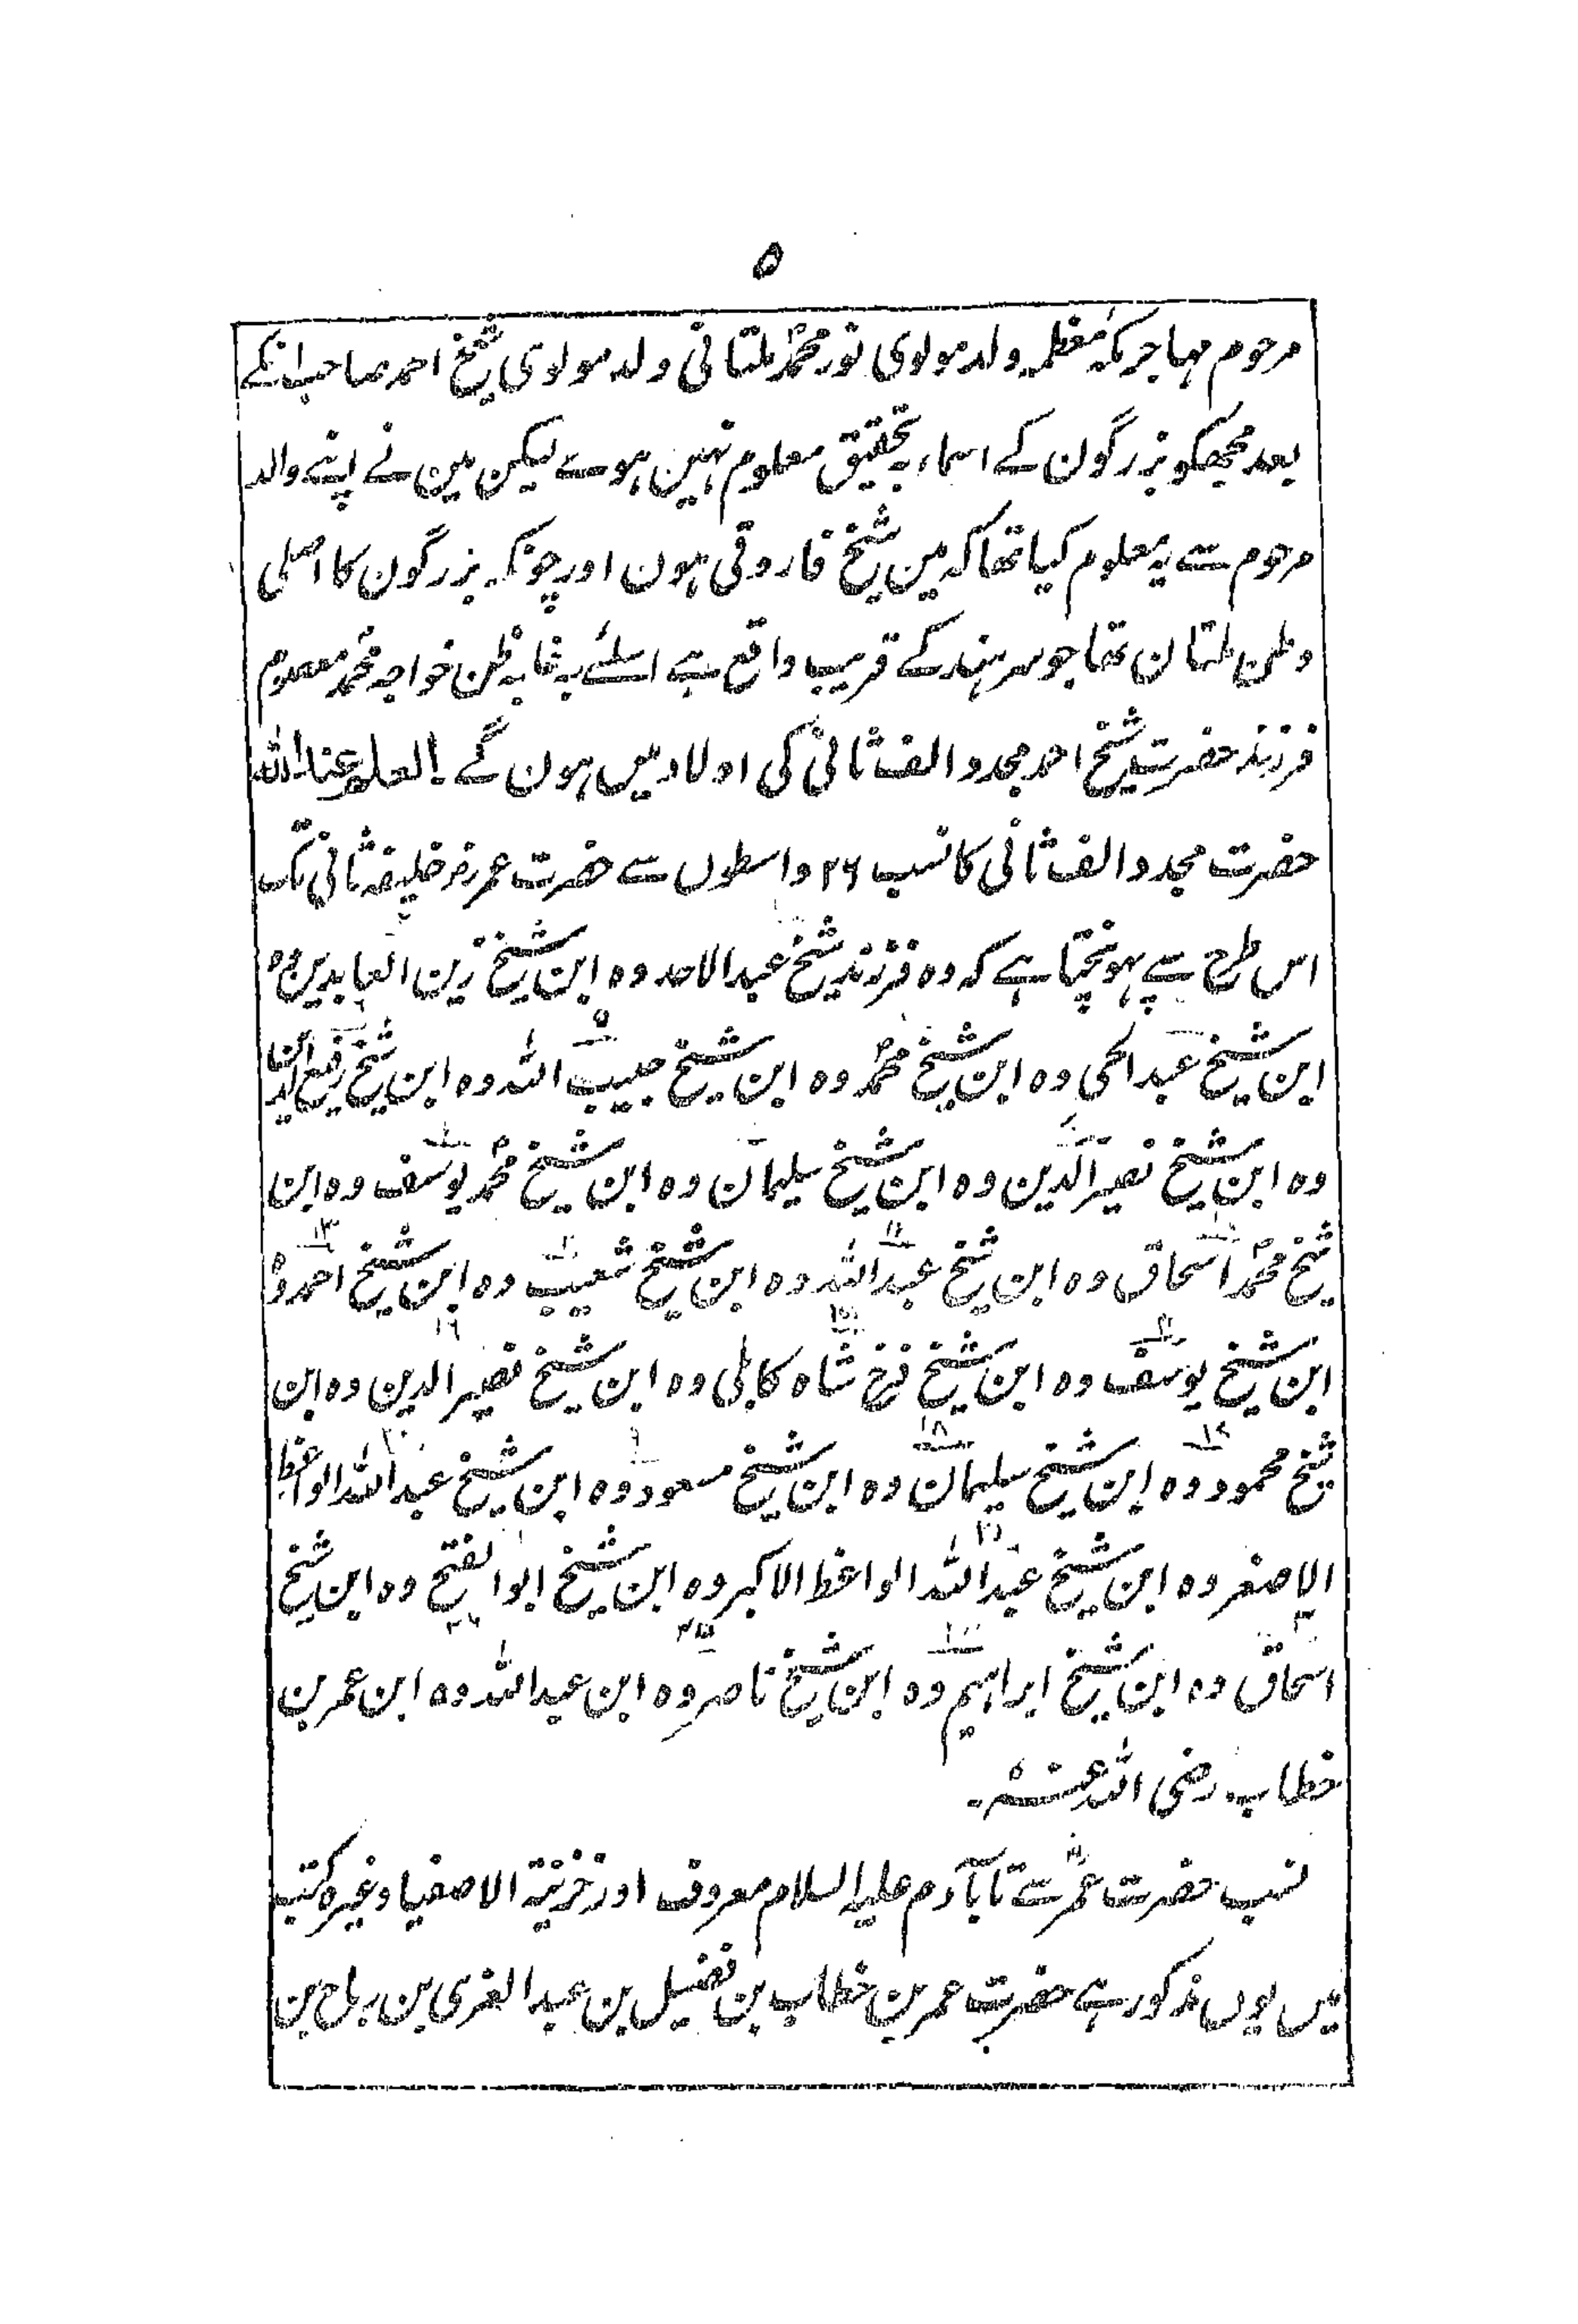 ۵
مرحوم مہاجر مکہ معظمہ ولد مولوی نور محمدؐ ملتانی ولد مولوی شیخ احمد صاحب انکے
بعد مجھکو بزرگون کے اسماء بہ تحقیق معلوم نہین ہوے لیکن مین نے اپنے والد
مرحوم سے یہ معلوم کیا تھا کہ مین شیخ فاروقی ہون اور چونکہ بزرگون کا اصلی
وطن ملتان تھا جو سرہند کے قریب واقع ہے اسلئے بہ غابہ ظن خواجہ محمد معصوم
فرزند حضرت شیخ احمد مجدد الف ثانی کی اولاد میں ہون گے العلم عند اللہ
حضرت مجدد الف ثانی کا نسب ۲۶ واسطوں سے حضرت عمر رضہ خلیفہ ثانی تک
اس طرح سے پہونچتا ہے کہ وہ فرزند شیخ عبد الاحد وہ ابن شیخ زین العابدین وہ
ابن شیخ عبد الحی وہ ابن شیخ محمدؐ وہ ابن شیخ حبیب اللہ وہ ابن شیخ رفیع الدین
وہ ابن شیخ نصیر الدین وہ ابن شیخ سلیمان وہ ابن شیخ محمدؐ یوسف وہ ابن
شیخ محمدؐ اسحاق وہ ابن شیخ عبد اللہ وہ ابن شیخ شعیب وہ ابن شیخ احمد وہ
ابن شیخ یوسف وہ ابن شیخ فرخ شاہ کابلی وہ ابن شیخ نصیر الدین وہ ابن
شیخ محمود وہ ابن شیخ سلیمان وہ ابن شیخ مسعود وہ ابن شیخ عبد اللہ الواعظ
الاصغر وہ ابن شیخ عبد اللہ الواعظ الاکبر وہ ابن شیخ ابو الفتح وہ ابن شیخ
اسحاق وہ ابن شیخ ابراہیم وہ ابن شیخ ناصر وہ ابن عبد اللہ وہ ابن عمر بن
خطاب رضی اللہ عنہ۔
نسب حضرت عمرؓ سے تا بآدم علیہ السلام معروف اور خزینۃ الاصفیا وغیرہ کتب
میں یوں مذکور ہے حضرت عمر بن خطاب بن نفیل بن عبد العزی بن ریاح بن